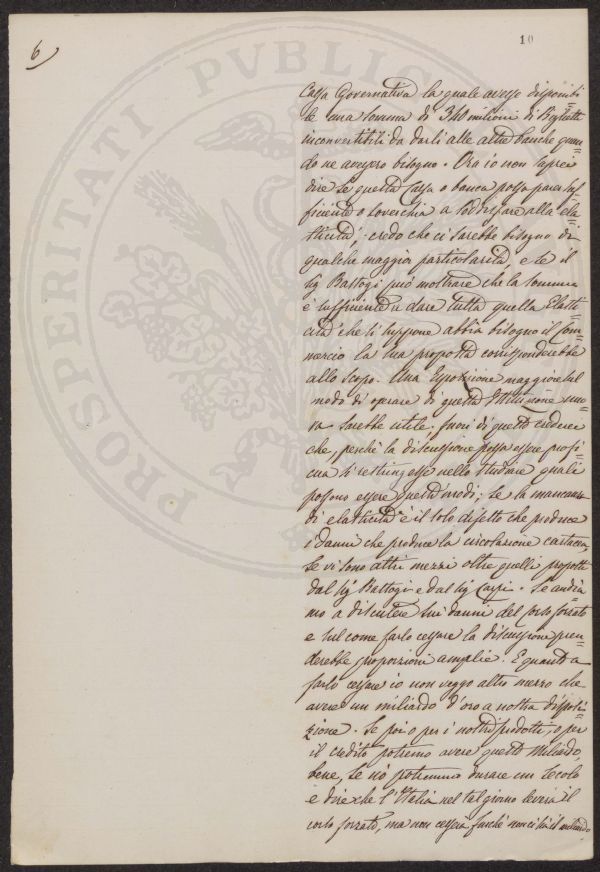 6
10
PROSPERITATI PVBLICAE
Cassa Governativa la quale avesse disponibi=
le una somma di 340 milioni di Biglietti
inconvertibili da darli alle altre banche quan=
do ne avessero bisogno. Ora io non saprei
dire se questa Cassa o banca possa parer suf=
ficiente o soverchia a soddisfare alla ela=
sticità, credo che ci sarebbe bisogno di
qualche maggior particolarità, e se il
Sig Bastogi può mostrare che la somma
è sufficiente a dare tutta quella Elasti=
cità che si suppone abbia bisogno il Com=
mercio la sua proposta corrisponderebbe
allo scopo. Una Esposizione maggiore sul
modo di operare di questa Istituzione nuo=
va sarebbe utile. fuori di questo crederei
che, perché la discussione possa essere profi=
cua si restringesse nello studiare quali
possono essere questi modi; se la mancanza
di elasticità è il solo difetto che produce
i danni che produce la circolazione cartacea,
se vi sono altri mezzi oltre quelli proposti
dal Sig Bastogi e dal Sig Carpi. Se andia=
mo a discutere sui danni del corso forzato
e sul come farlo cessare la discussione pren=
derebbe proporzioni amplie. E quanto a
farlo cessare io non veggo altro mezzo che
avere un miliardo d'oro a nostra disposi=
zione. Se poi o per i nostri prodotti, o per
il credito potremo avere questo Miliardo,
bene, se nò potremmo durare un Secolo
e dire che l'Italia nel tal giorno leverà il
corso forzato, ma non cesserà finché non ci sia il miliardo